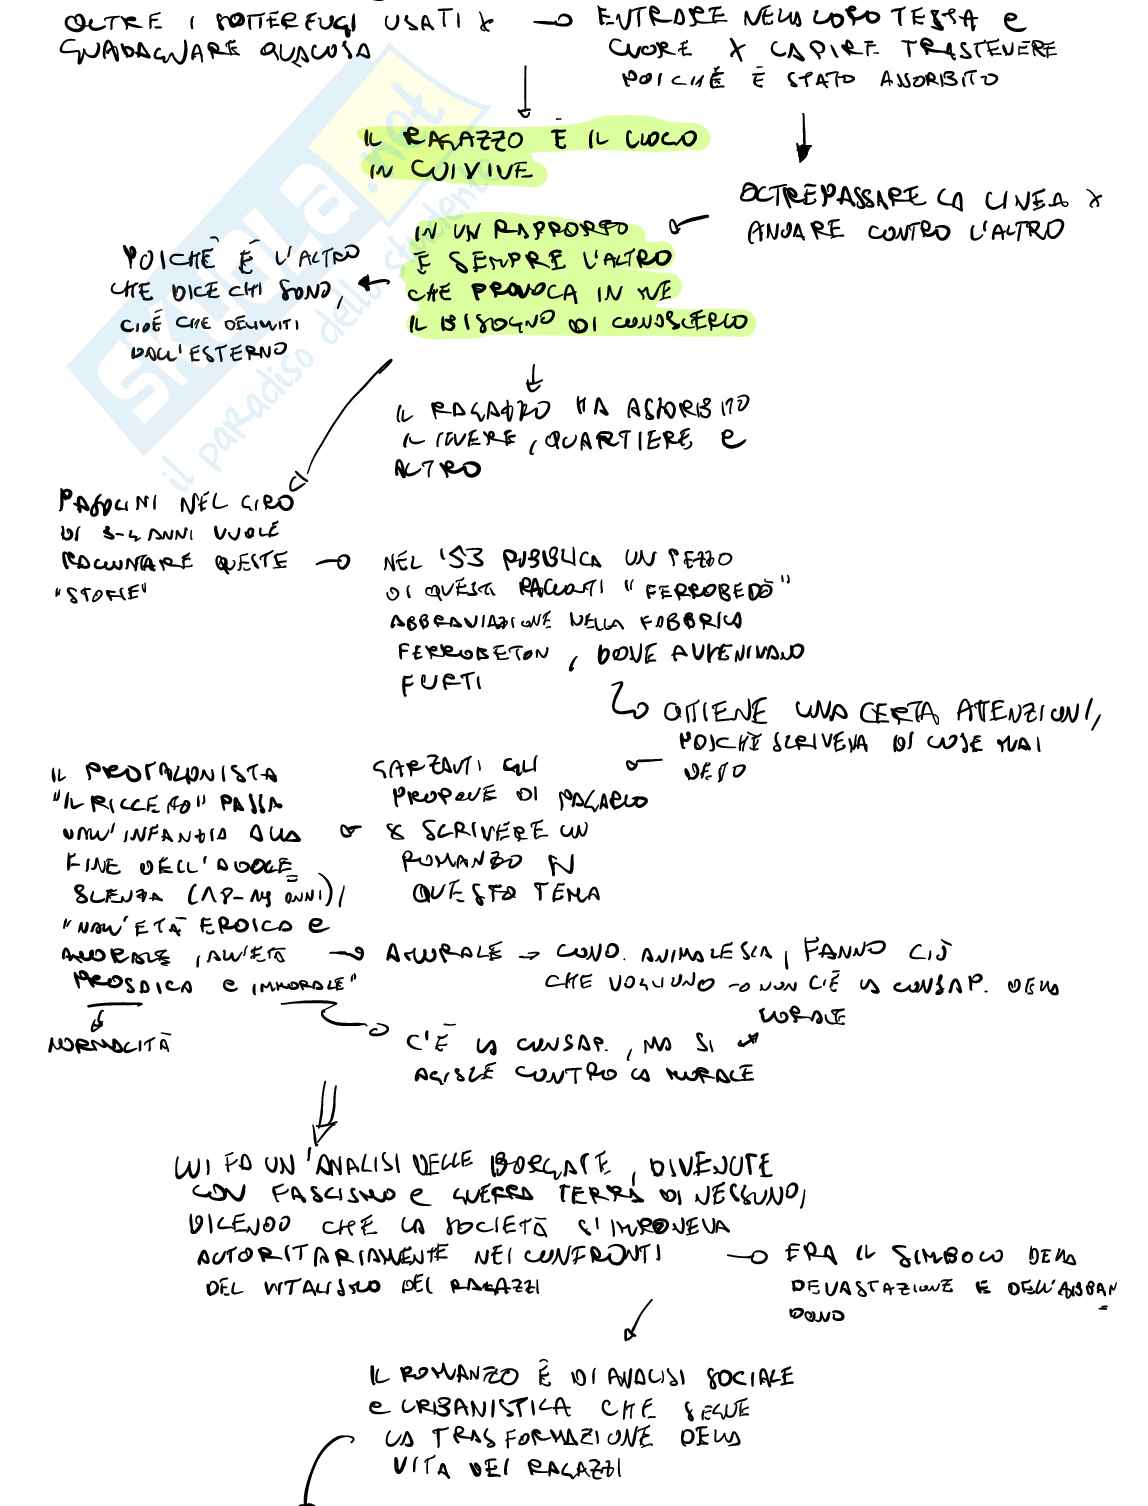 OLTRE I SOTTERFUGI USATI X → ENTRARE NELLA LORO TESTA E
GUADAGNARE QUALCOSA
CUORE X CAPIRE TRASTEVERE
POICHÉ È STATO ASSORIBITO
IL RAGAZZO È IL LUOGO
IN CUI VIVE
OLTREPASSARE LA LINEA X
ANDARE CONTRO L'ALTRO
IN UN RAPPORTO
È SEMPRE L'ALTRO
CHE PROVOCA IN ME
IL BISOGNO DI CONOSCERLO
POICHÉ È L'ALTRO
CHE DICE CHI SONO,
CIOÈ CHE DELIMITI
DALL'ESTERNO
IL RAGAZZO HA ASSORBITO
IL TEVERE, QUARTIERE E
ALTRO
PASOLINI NEL GIRO
DI 3-4 ANNI VUOLE
RACCONTARE QUESTE
"STORIE"
NEL '53 PUBBLICA UN PEZZO
DI QUESTI RACCONTI "FERROBEDÒ"
ABBRAVIAZIONE NELLA FABBRICA
FERROBETON, DOVE AVVENIVANO
FURTI
OTTIENE UNA CERTA ATENZIONI,
POICHÈ SCRIVEVA DI COSE MAI
DETTO
GARZANTI GLI
PROPONE DI PAGARLO
X SCRIVERE UN
ROMANZO SU
QUESTO TEMA
IL PROTAGONISTA
"IL RICCETTO" PASSA
DALL'INFANZIA ALLA
FINE DELL'ADOLE
SCENZA (18-19 ANNI),
"DALL'ETÀ EROICA E
AMORALE, ALL'ETÀ
PROSAICA E IMMORALE"
NORMALITÀ
AMORALE → COND. ANIMALESCA, FANNO CIÒ
CHE VOGLIONO → NON C'È LA CONSAP. DELLA
MORALE
C'È LA CONSAP., MA SI
AGISCE CONTRO LA MORALE
LUI FA UN'ANALISI DELLE BORGATE, DIVENUTE
CON FASCISMO E GUERRA TERRA DI NESSUNO,
DICENDO CHE LA SOCIETÀ S'IMPONEVA
AUTORITARIAMENTE NEI CONFRONTI
DEL VITALISMO DEI RAGAZZI
ERA IL SIMBOLO DELLA
DEVASTAZIONE E DELL'ABBAN
DONO
IL ROMANZO È DI ANALISI SOCIALE
E URBANISTICA CHE SEGUE
LA TRASFORMAZIONE DELLA
VITA DEI RAGAZZI
SKUOLA.net
il paradiso dello studente